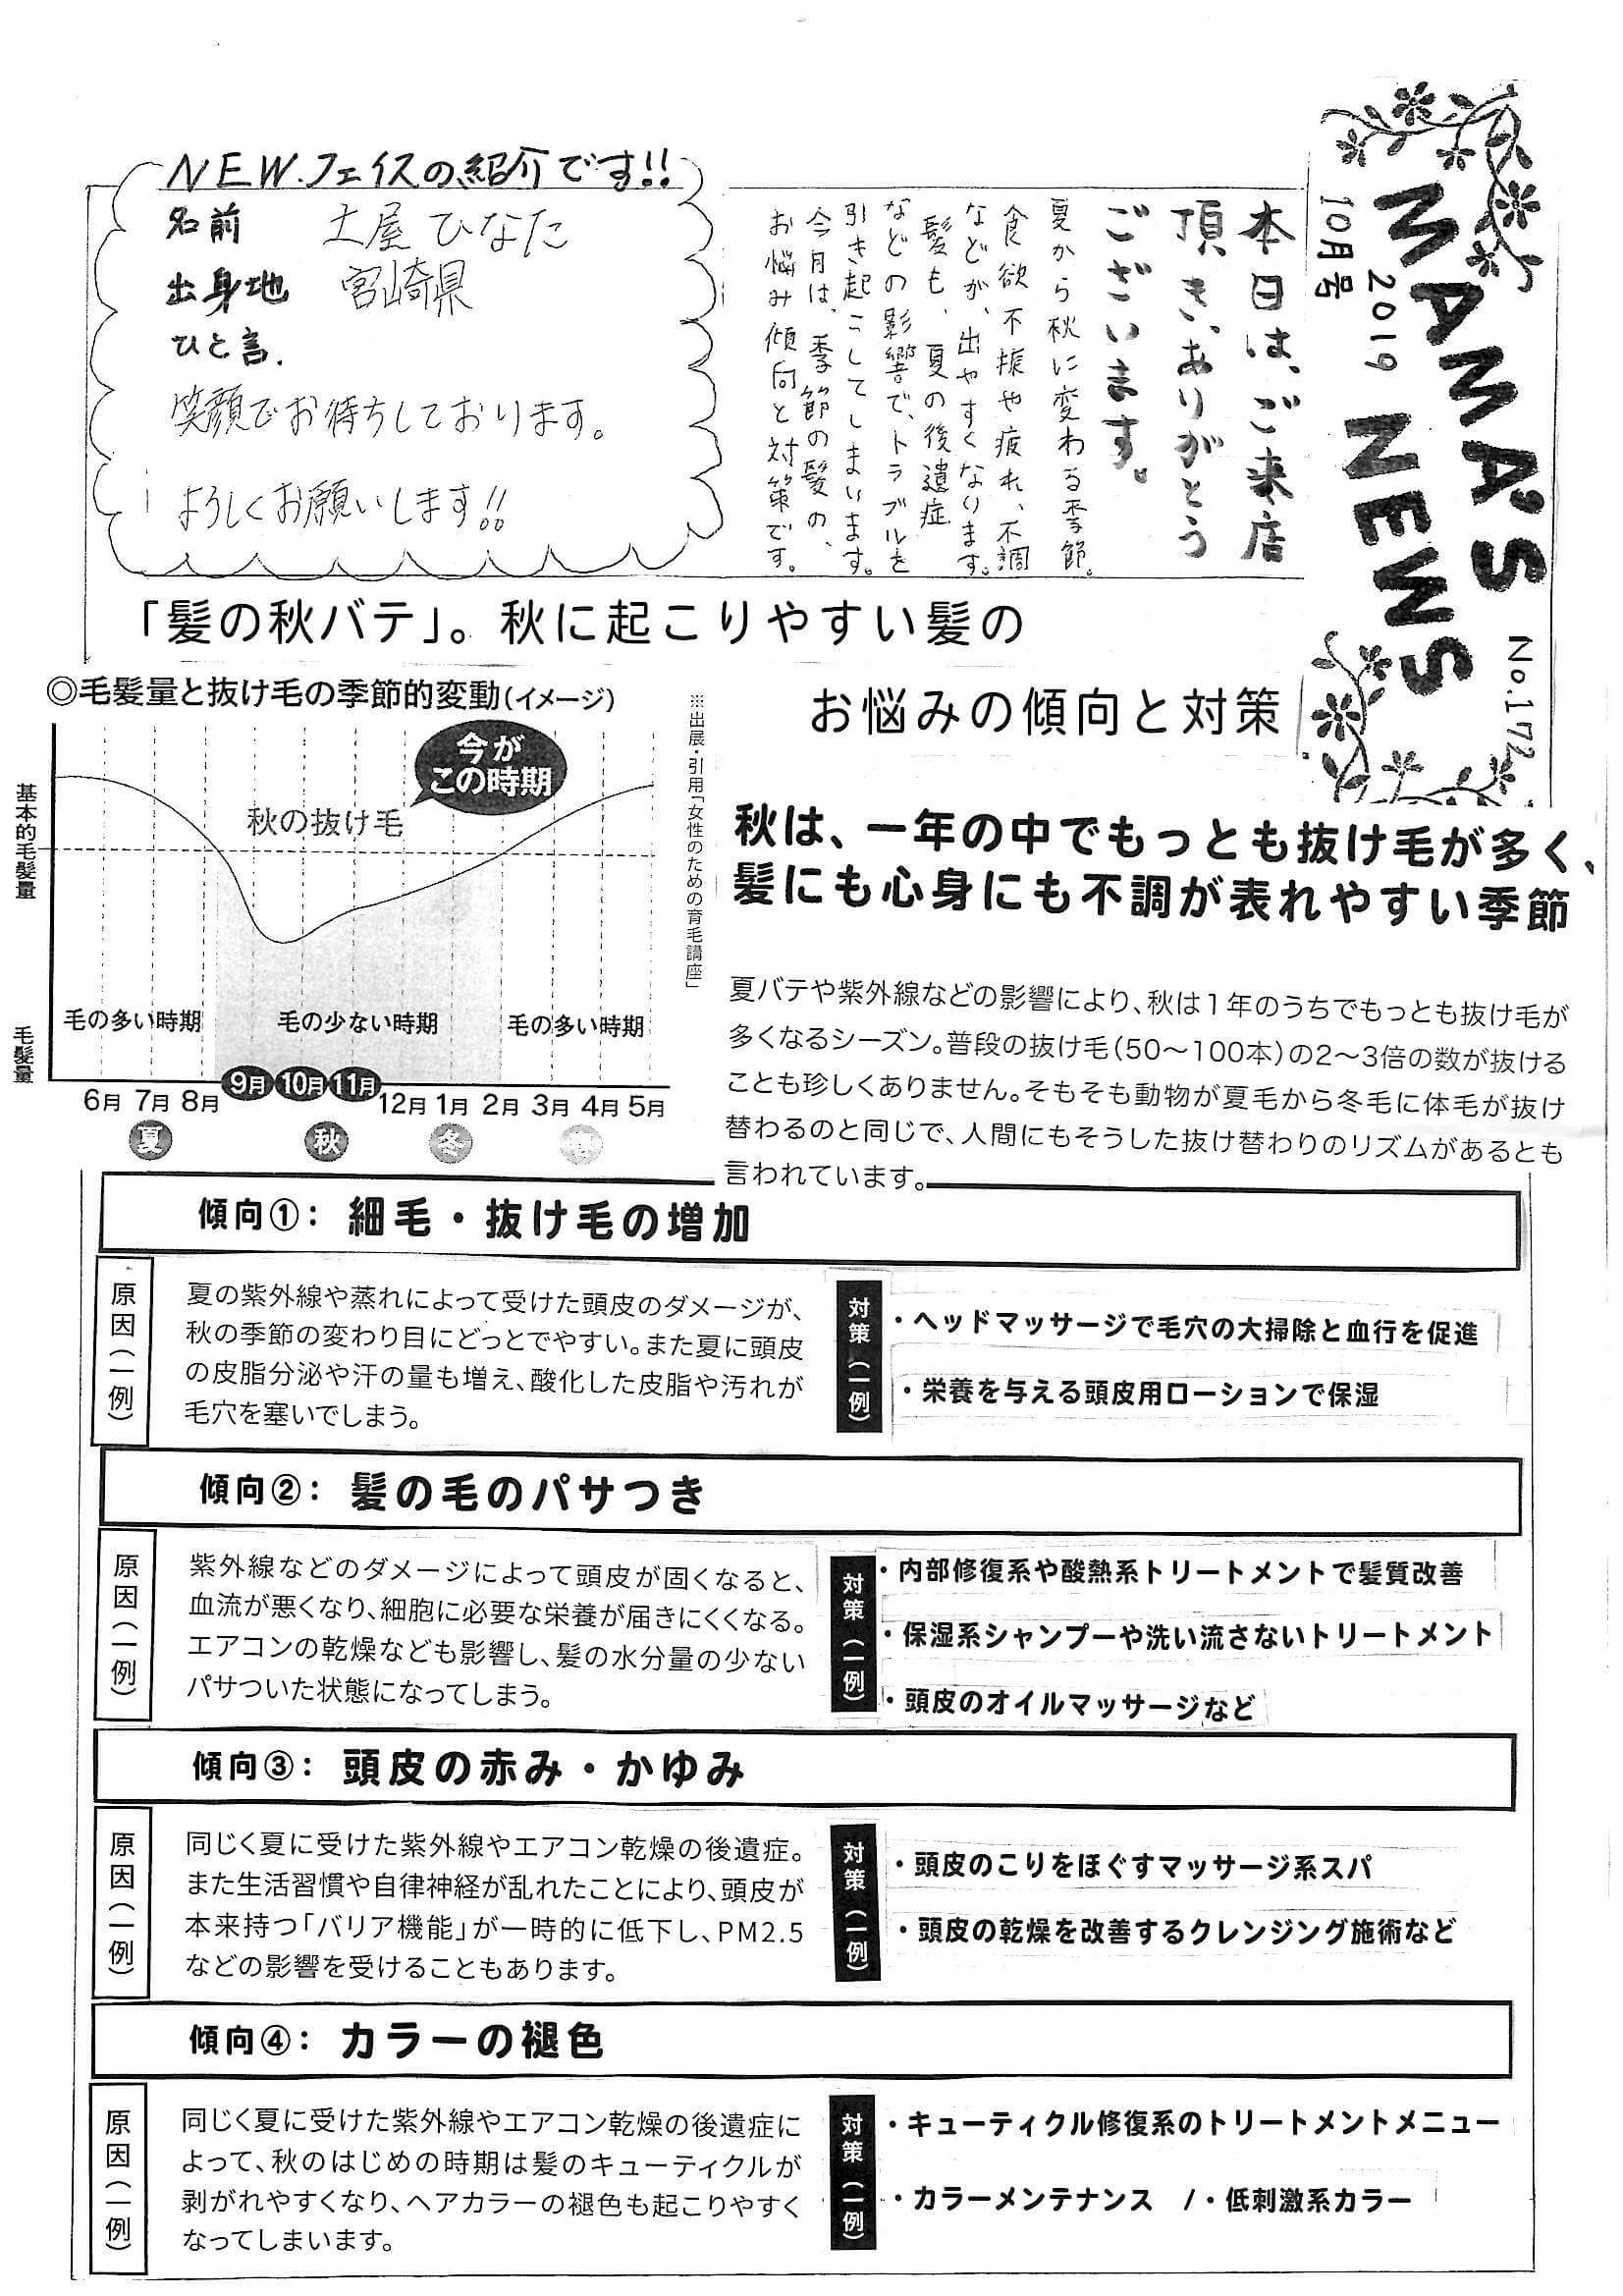 MAMA'S NEWS
2019
10月号
No.172
本日は、ご来店
頂き、ありがとう
ございます。
夏から秋に変わる季節。
食欲不振や疲れ、不調
などが、出やすくなります。
髪も、夏の後遺症
などの影響で、トラブルを
引き起こしてしまいます。
今月は、季節の髪の、
お悩み傾向と対策です。
NEW.フェイスの紹介です!!
名前 土屋 ひなた
出身地 宮崎県
ひと言.
笑顔でお待ちしております。
よろしくお願いします!!
「髪の秋バテ」。秋に起こりやすい髪の
お悩みの傾向と対策
◎毛髪量と抜け毛の季節的変動(イメージ)
今が
この時期
秋の抜け毛
基本的毛髪量
毛髪量
毛の多い時期 毛の少ない時期 毛の多い時期
6月 7月 8月 9月 10月 11月 12月 1月 2月 3月 4月 5月
夏 秋 冬 春
※出展・引用「女性のための育毛講座」
秋は、一年の中でもっとも抜け毛が多く、
髪にも心身にも不調が表れやすい季節
夏バテや紫外線などの影響により、秋は1年のうちでもっとも抜け毛が
多くなるシーズン。普段の抜け毛(50〜100本)の2〜3倍の数が抜ける
ことも珍しくありません。そもそも動物が夏毛から冬毛に体毛が抜け
替わるのと同じで、人間にもそうした抜け替わりのリズムがあるとも
言われています。
傾向①: 細毛・抜け毛の増加
原因(一例)
夏の紫外線や蒸れによって受けた頭皮のダメージが、
秋の季節の変わり目にどっとでやすい。また夏に頭皮
の皮脂分泌や汗の量も増え、酸化した皮脂や汚れが
毛穴を塞いでしまう。
対策(一例)
・ヘッドマッサージで毛穴の大掃除と血行を促進
・栄養を与える頭皮用ローションで保湿
傾向②: 髪の毛のパサつき
原因(一例)
紫外線などのダメージによって頭皮が固くなると、
血流が悪くなり、細胞に必要な栄養が届きにくくなる。
エアコンの乾燥なども影響し、髪の水分量の少ない
パサついた状態になってしまう。
対策(一例)
・内部修復系や酸熱系トリートメントで髪質改善
・保湿系シャンプーや洗い流さないトリートメント
・頭皮のオイルマッサージなど
傾向③: 頭皮の赤み・かゆみ
原因(一例)
同じく夏に受けた紫外線やエアコン乾燥の後遺症。
また生活習慣や自律神経が乱れたことにより、頭皮が
本来持つ「バリア機能」が一時的に低下し、PM2.5
などの影響を受けることもあります。
対策(一例)
・頭皮のこりをほぐすマッサージ系スパ
・頭皮の乾燥を改善するクレンジング施術など
傾向④: カラーの褪色
原因(一例)
同じく夏に受けた紫外線やエアコン乾燥の後遺症に
よって、秋のはじめの時期は髪のキューティクルが
剥がれやすくなり、ヘアカラーの褪色も起こりやすく
なってしまいます。
対策(一例)
・キューティクル修復系のトリートメントメニュー
・カラーメンテナンス /・低刺激系カラー